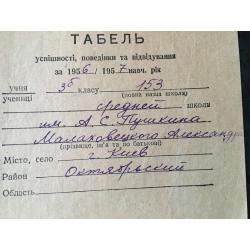 ТАБЕЛЬ
успішності, поведінки та відвідування
за 1956/1957 навч. рік
учня
учениці 3б класу 153
(повна назва школи)
средней школы
им. А. С. Пушкина
Малаховецкого Александра
(прізвище, ім'я та по батькові)
Місто, село г. Киев
Район Октябрьский
Область